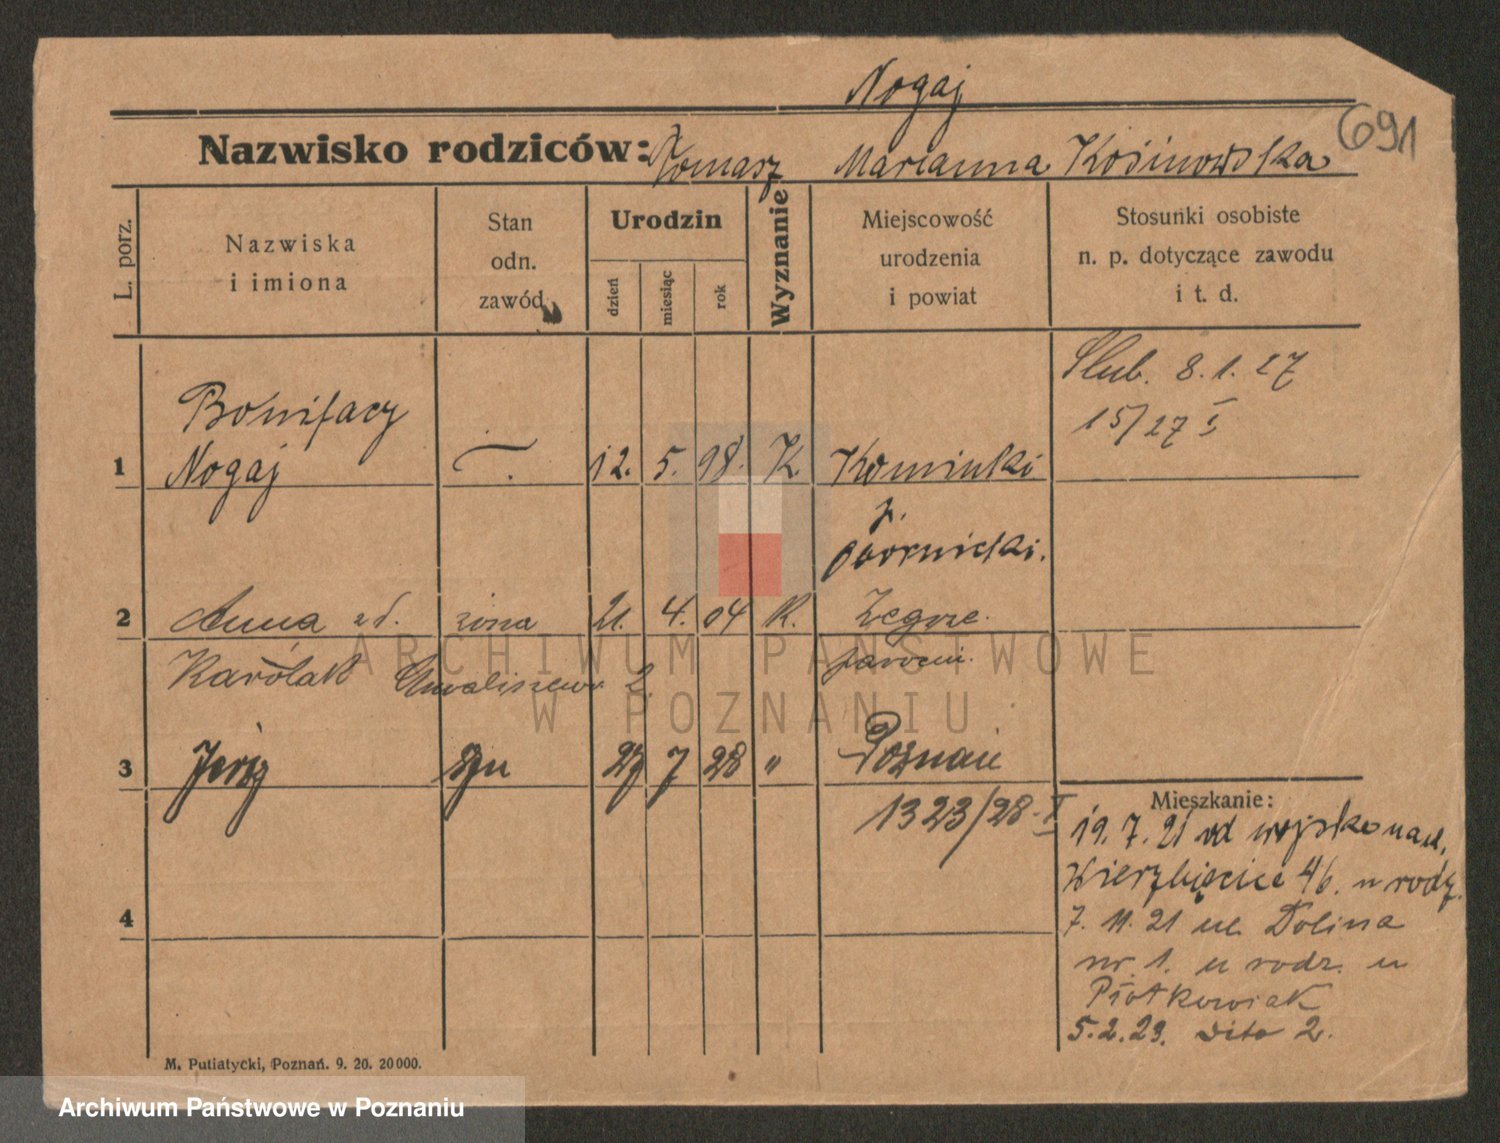 Nogaj
691
Nazwisko rodziców: Tomasz Marianna Kośinowska
L. porz.
Nazwiska i imiona
Stan odn. zawód
Urodzin
dzień
miesiąc
rok
Wyznanie
Miejscowość urodzenia i powiat
Stosunki osobiste n. p. dotyczące zawodu i t. d.
Ślub. 8. 1. 27
15/27 I
Bonifacy
1 Nogaj 12. 5. 98. K. Kominki
p.
2 Anna żona 21. 4. 04 K. Zegrze
Karolak
3 Jerzy syn 7 28 " Poznań
1323/28
Mieszkanie:
19. 7. 21 od wojsko
Wierzbięcice 46. u rodz.
4
7. 11. 21 ul. Dolina
nr. 1. u rodz. u
Piotkowiak
5. 2. 29. dito 2.
M. Putiatycki, Poznań. 9. 20. 20000.
ARCHIWUM PAŃSTWOWE
W POZNANIU
Archiwum Państwowe w Poznaniu